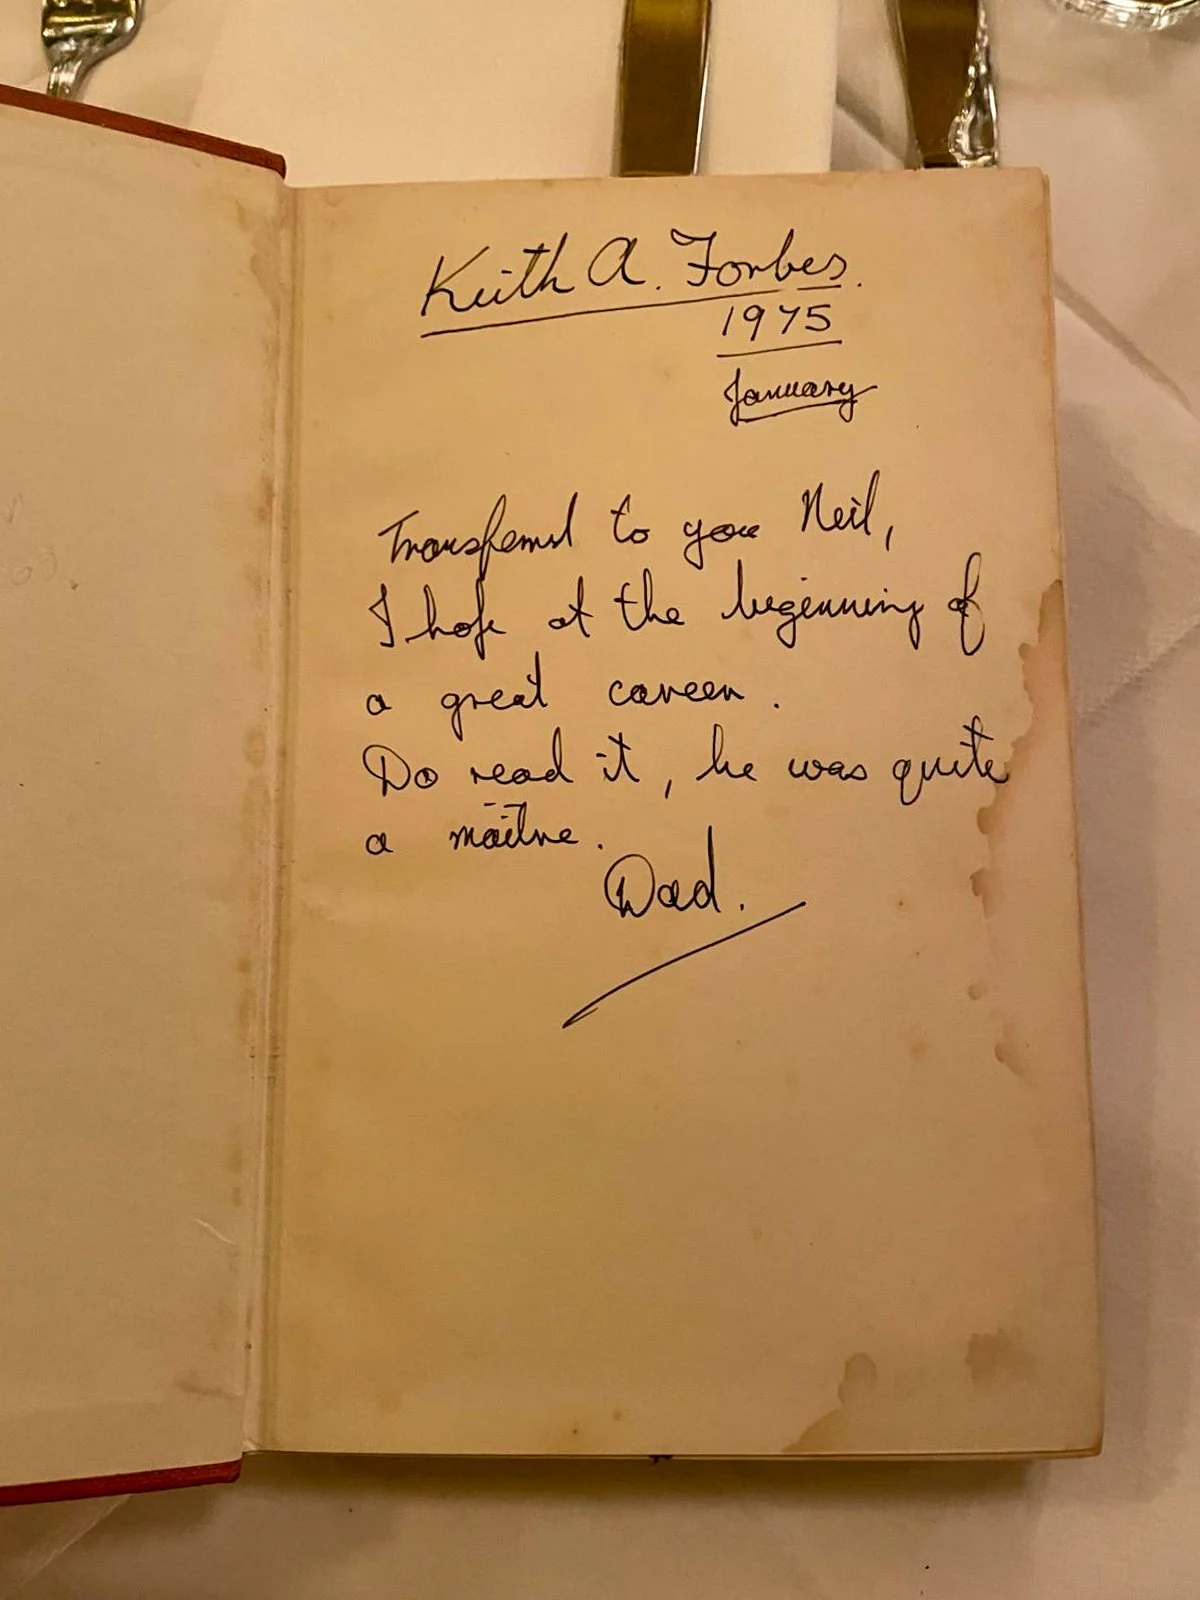 Keith A. Forbes.
1975
January
Transferred to you Neil,
I hope at the beginning of
a great career.
Do read it, he was quite
a maître.
Dad.